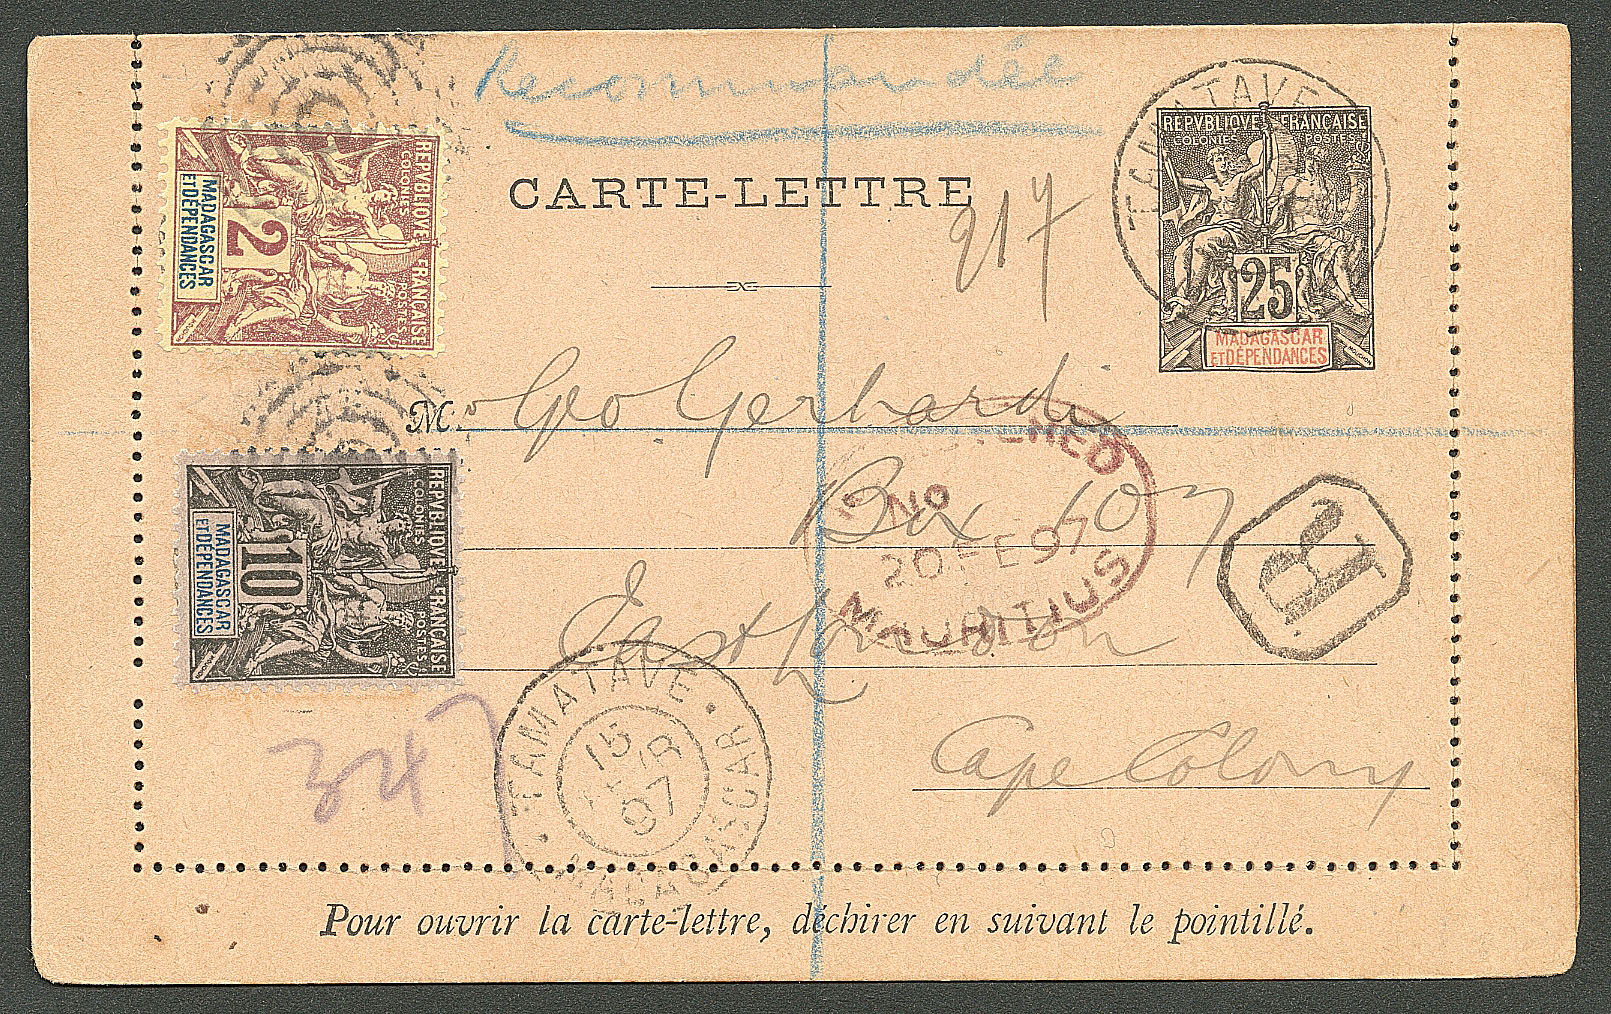 Recommandée
CARTE-LETTRE
217
TAMATAVE
REPVBLIQVE FRANÇAISE
COLONIES POSTES
25
MADAGASCAR
ET DÉPENDANCES
REPVBLIQVE FRANÇAISE
COLONIES POSTES
2
MADAGASCAR
ET DÉPENDANCES
M. Geo Gerhardi
Box 107
East London
Cape Colony
No
20 FE 97
MAURITIUS
R
REPVBLIQVE FRANÇAISE
COLONIES POSTES
10
MADAGASCAR
ET DÉPENDANCES
TAMATAVE
15
97
MADAGASCAR
Pour ouvrir la carte-lettre, déchirer en suivant le pointillé.